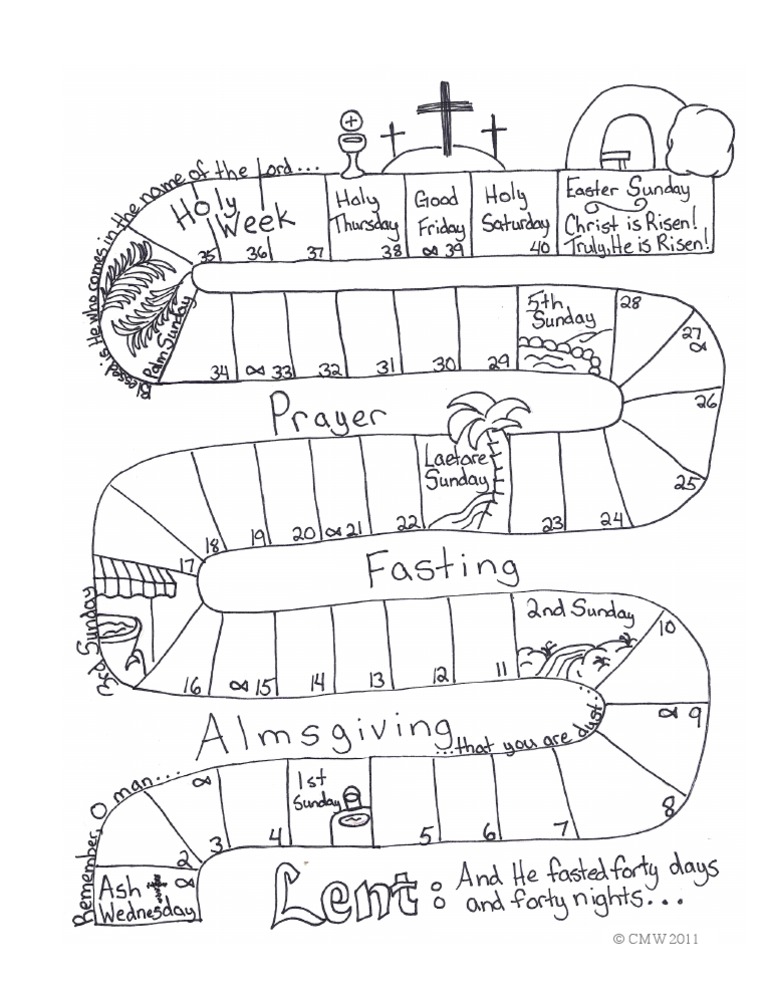 Blessed is He who comes in the name of the Lord...
Holy
Week
35
36
37
Holy
Thursday
38
Good
Friday
∝ 39
Holy
Saturday
40
Easter Sunday
Christ is Risen!
Truly, He is Risen!
Palm Sunday
34
∝ 33
32
31
30
29
5th
Sunday
28
27
∝
26
25
Prayer
18
19
20
∝ 21
22
Laetare
Sunday
23
24
17
Fasting
3rd Sunday
16
∝ 15
14
13
12
11
2nd Sunday
10
∝ 9
8
Almsgiving
Remember, O man...
...that you are dust.
∝
3
4
1st
Sunday
5
6
7
2
∝
Ash
Wednesday
Lent:
And He fasted forty days
and forty nights...
© CMW 2011